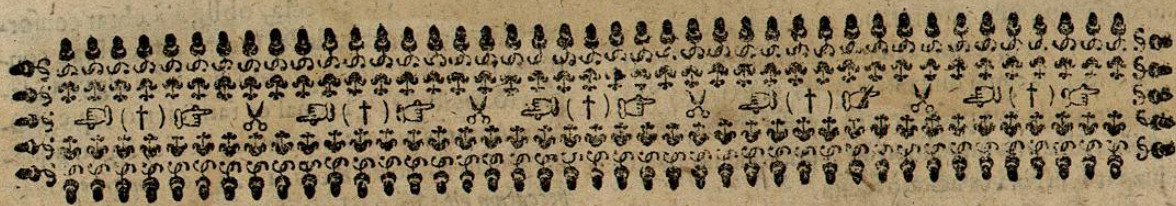 ☜ ( † ) ☞ ✂ ☜ ( † ) ☞ ✂ ☜ ( † ) ☞ ✂ ☜ ( † ) ☞ ✂ ☜ ( † ) ☞